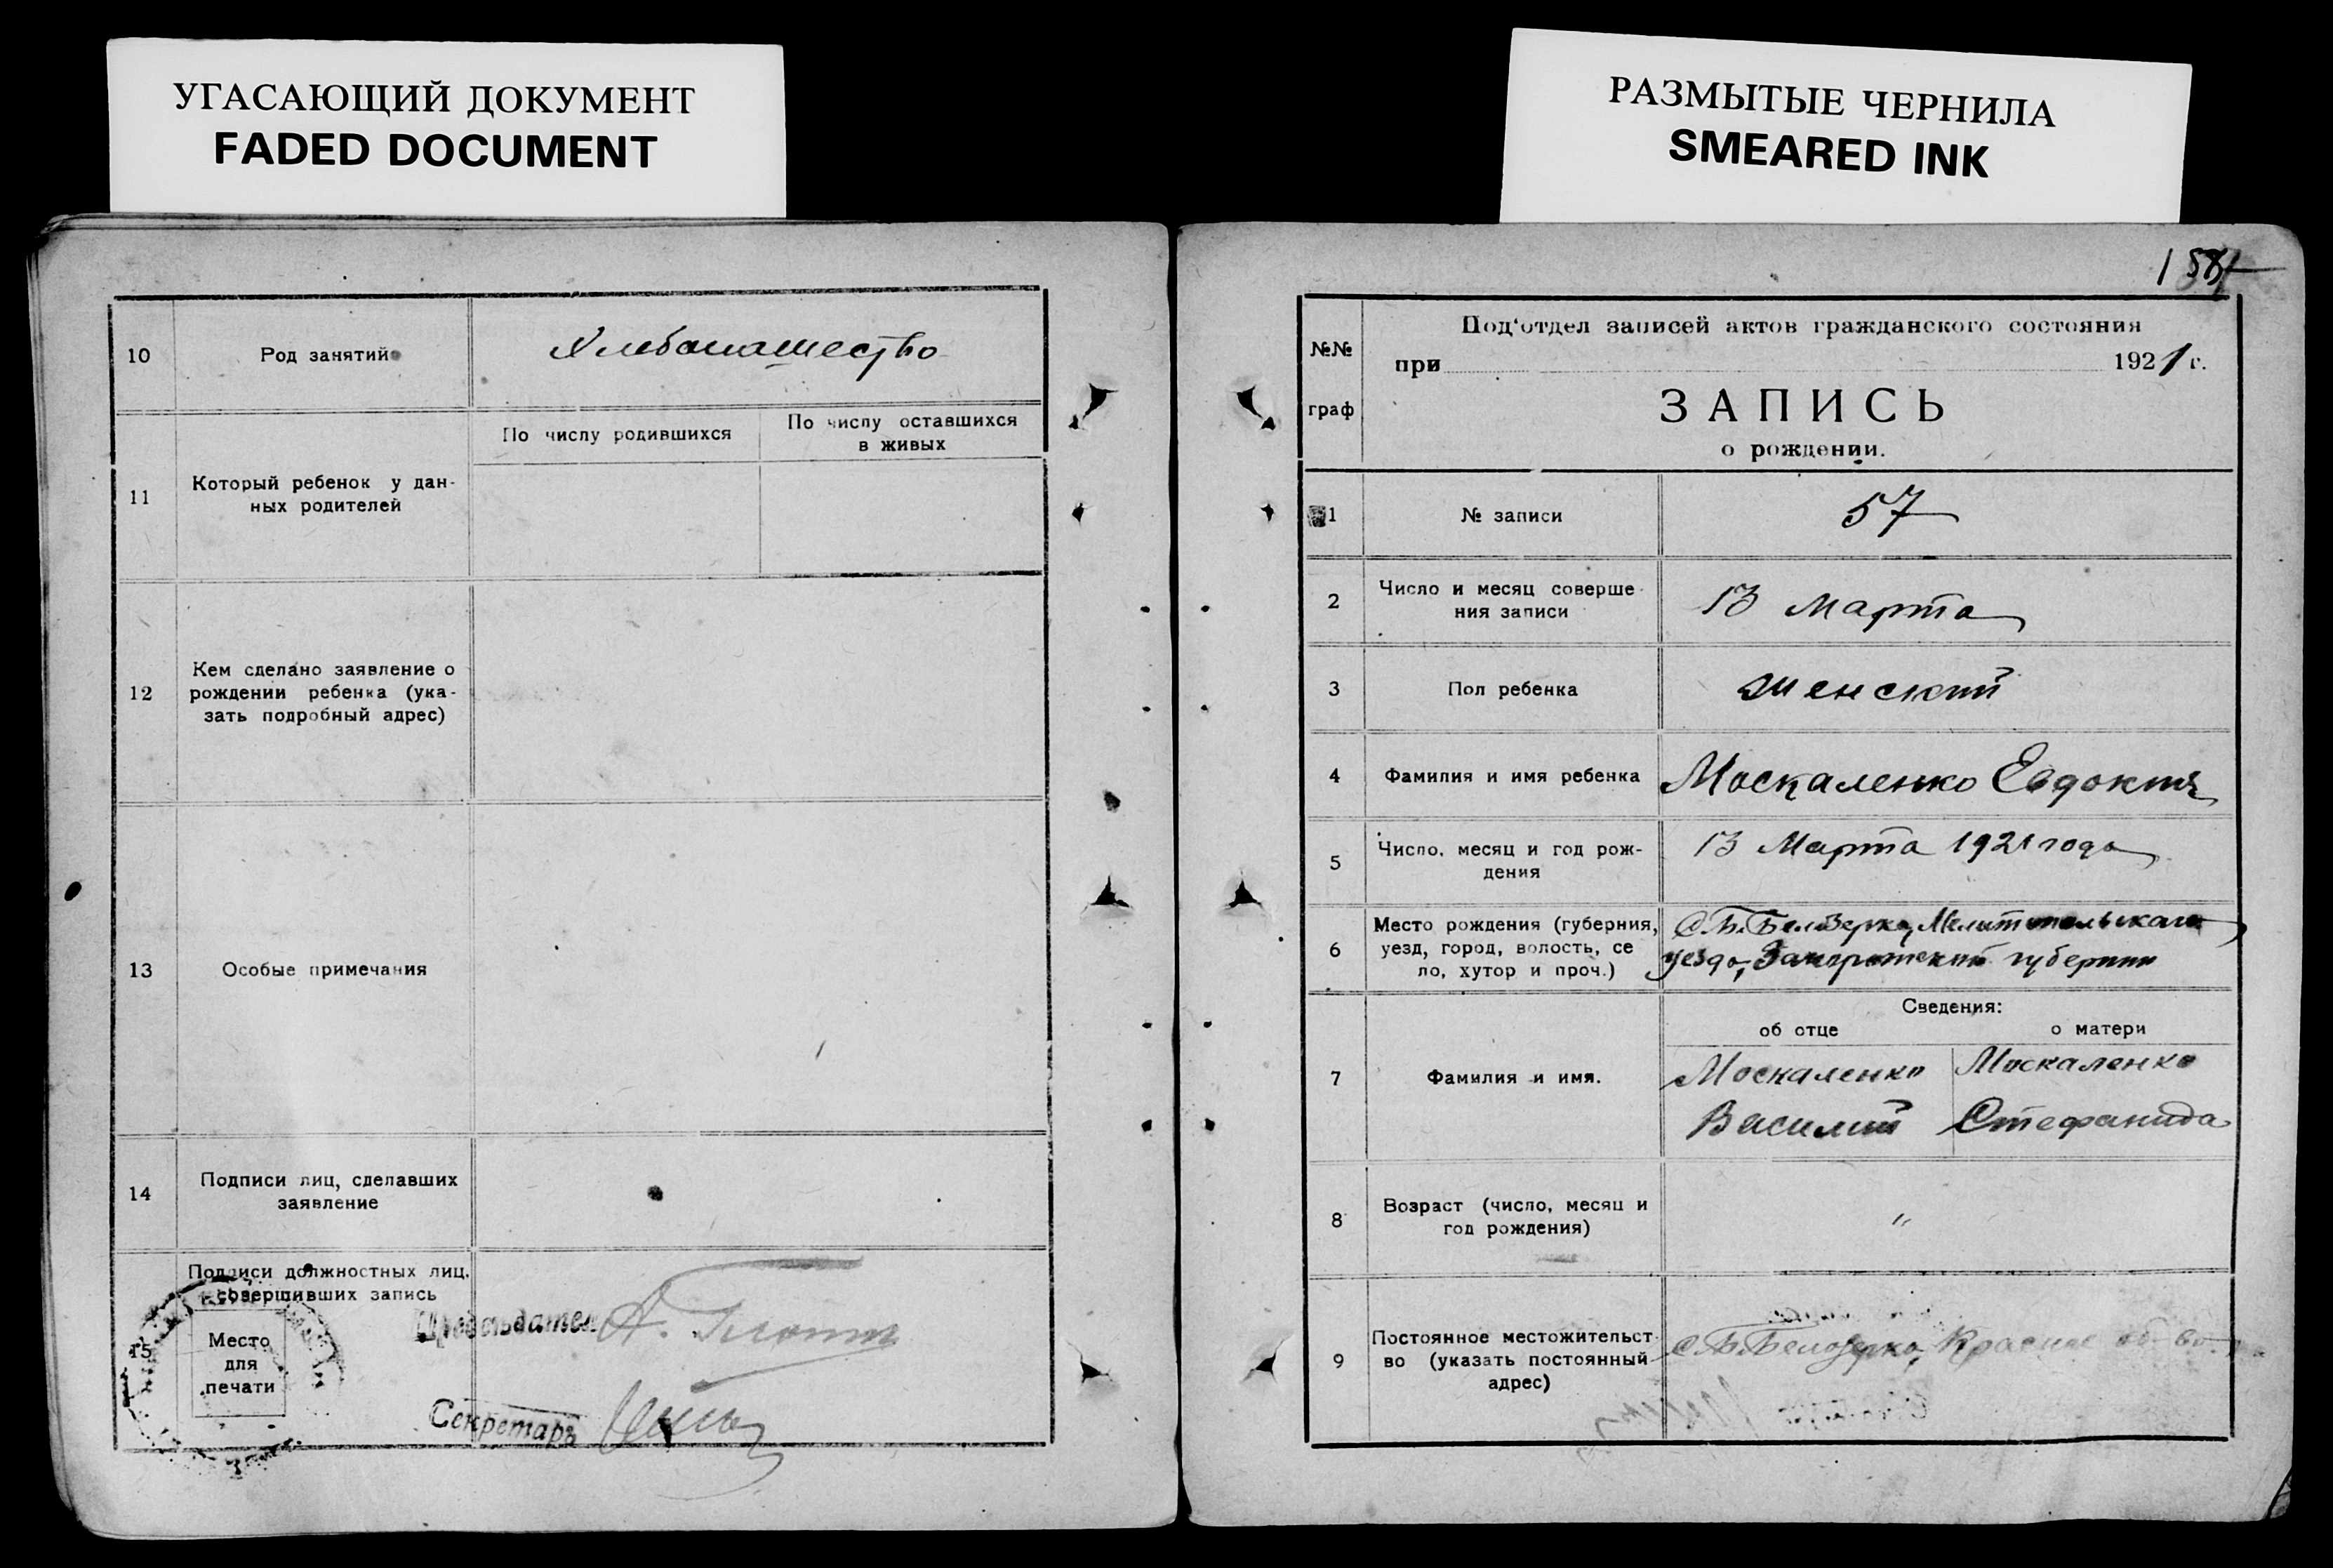 УГАСАЮЩИЙ ДОКУМЕНТ
FADED DOCUMENT
РАЗМЫТЫЕ ЧЕРНИЛА
SMEARED INK
10
Род занятий
Хлебопашество
11
Который ребенок у дан-
ных родителей
По числу родившихся
По числу оставшихся
в живых
12
Кем сделано заявление о
рождении ребенка (ука-
зать подробный адрес)
13
Особые примечания
14
Подписи лиц, сделавших
заявление
15
Подписи должностных лиц,
совершивших запись
Место
для
печати
Председатель
Секретарь
№№
граф
Под'отдел записей актов гражданского состояния
при 1921 г.
ЗАПИСЬ
о рождении.
1
№ записи
57
2
Число и месяц соверше-
ния записи
13 Марта
3
Пол ребенка
женский
4
Фамилия и имя ребенка
Москаленко Евдокия
5
Число, месяц и год рож-
дения
13 Марта 1921 года
6
Место рождения (губерния,
уезд, город, волость, се
ло, хутор и проч.)
С. Б. Белозерка, Мелитопольскаго
уезда, Запорожской губернии
Сведения:
об отце
о матери
7
Фамилия и имя.
Москаленко
Василий
Москаленко
Стефанида
8
Возраст (число, месяц и
год рождения)
"
9
Постоянное местожительст-
во (указать постоянный
адрес)
С. Б. Белозерка, Красное об-во